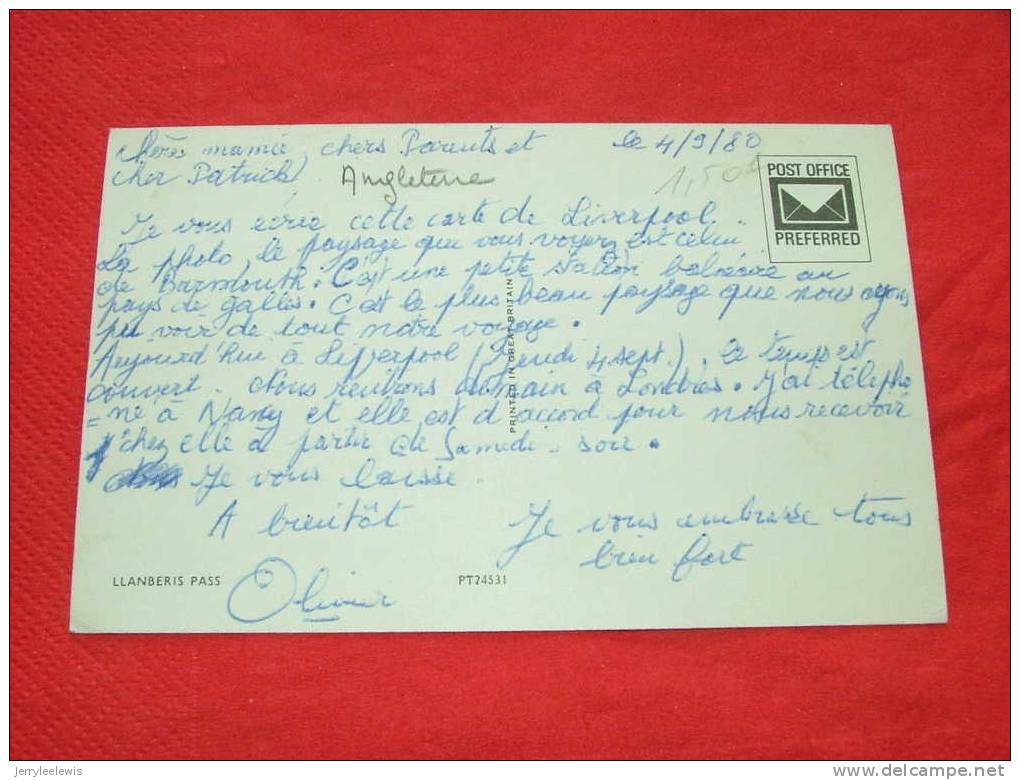 Chère mamie, chers Parents et le 4/9/80
cher Patrick
Angleterre
1,50
POST OFFICE
PREFERRED
Je vous écris cette carte de Liverpool.
La photo, le paysage que vous voyez est celui
de Barmouth. C'est une petite station balnéaire au
pays de galles. C'est le plus beau paysage que nous ayons
pu voir de tout notre voyage.
Aujourd'hui à Liverpool (Jeudi 4 sept.), le temps est
couvert. Nous rentrons demain à Londres. J'ai télépho
=né à Nany et elle est d'accord pour nous recevoir
chez elle à partir de Samedi-soir.
Je vous laisse.
A bientôt Je vous embrasse tous
bien fort
Olivier
PRINTED IN GREAT BRITAIN
LLANBERIS PASS PT24531
jerryleelewis
delcampe.net